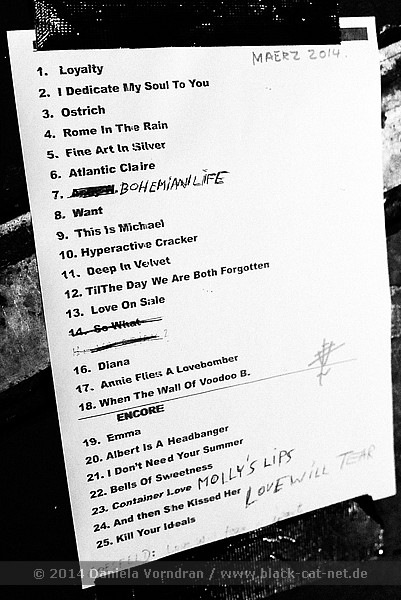 MAERZ 2014.
1. Loyalty
2. I Dedicate My Soul To You
3. Ostrich
4. Rome In The Rain
5. Fine Art In Silver
6. Atlantic Claire
7. BOHEMIAN LIFE
8. Want
9. This Is Michael
10. Hyperactive Cracker
11. Deep In Velvet
12. TilThe Day We Are Both Forgotten
13. Love On Sale
14. So What
16. Diana
17. Annie Flies A Lovebomber
18. When The Wall Of Voodoo B.
ENCORE
19. Emma
20. Albert Is A Headbanger
21. I Don't Need Your Summer
22. Bells Of Sweetness
23. Container Love MOLLY'S LIPS
24. And then She Kissed Her LOVE WILL TEAR
25. Kill Your Ideals
© 2014 Daniela Vorndran / www.black-cat-net.de